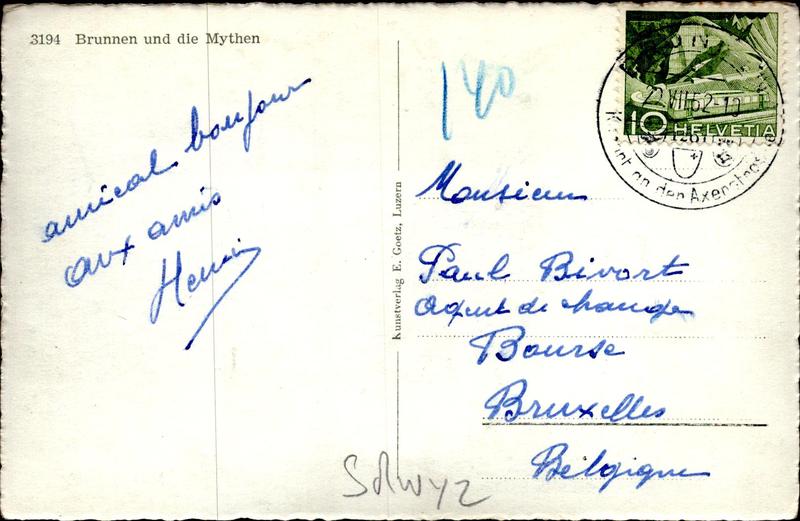 3194 Brunnen und die Mythen
amical bonjour
aux amis
Henri
Kunstverlag E. Goetz, Luzern
140
22.VII.52-10
an den Axenstrasse
10 HELVETIA
Monsieur
Paul Bivort
Agent de change
Bourse
Bruxelles
Belgique
Schwyz